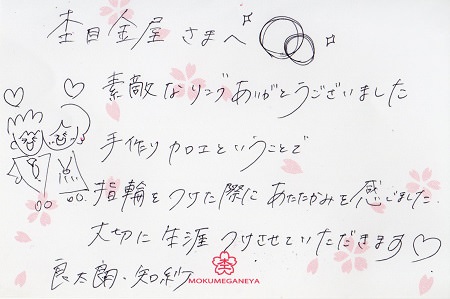 杢目金屋 さまへ
素敵なリングありがとうございました
手作り加工ということで
指輪をつけた際にあたたかみを感じました.
大切に生涯つけさせていただきます♡
良太朗・知紗
MOKUMEGANEYA